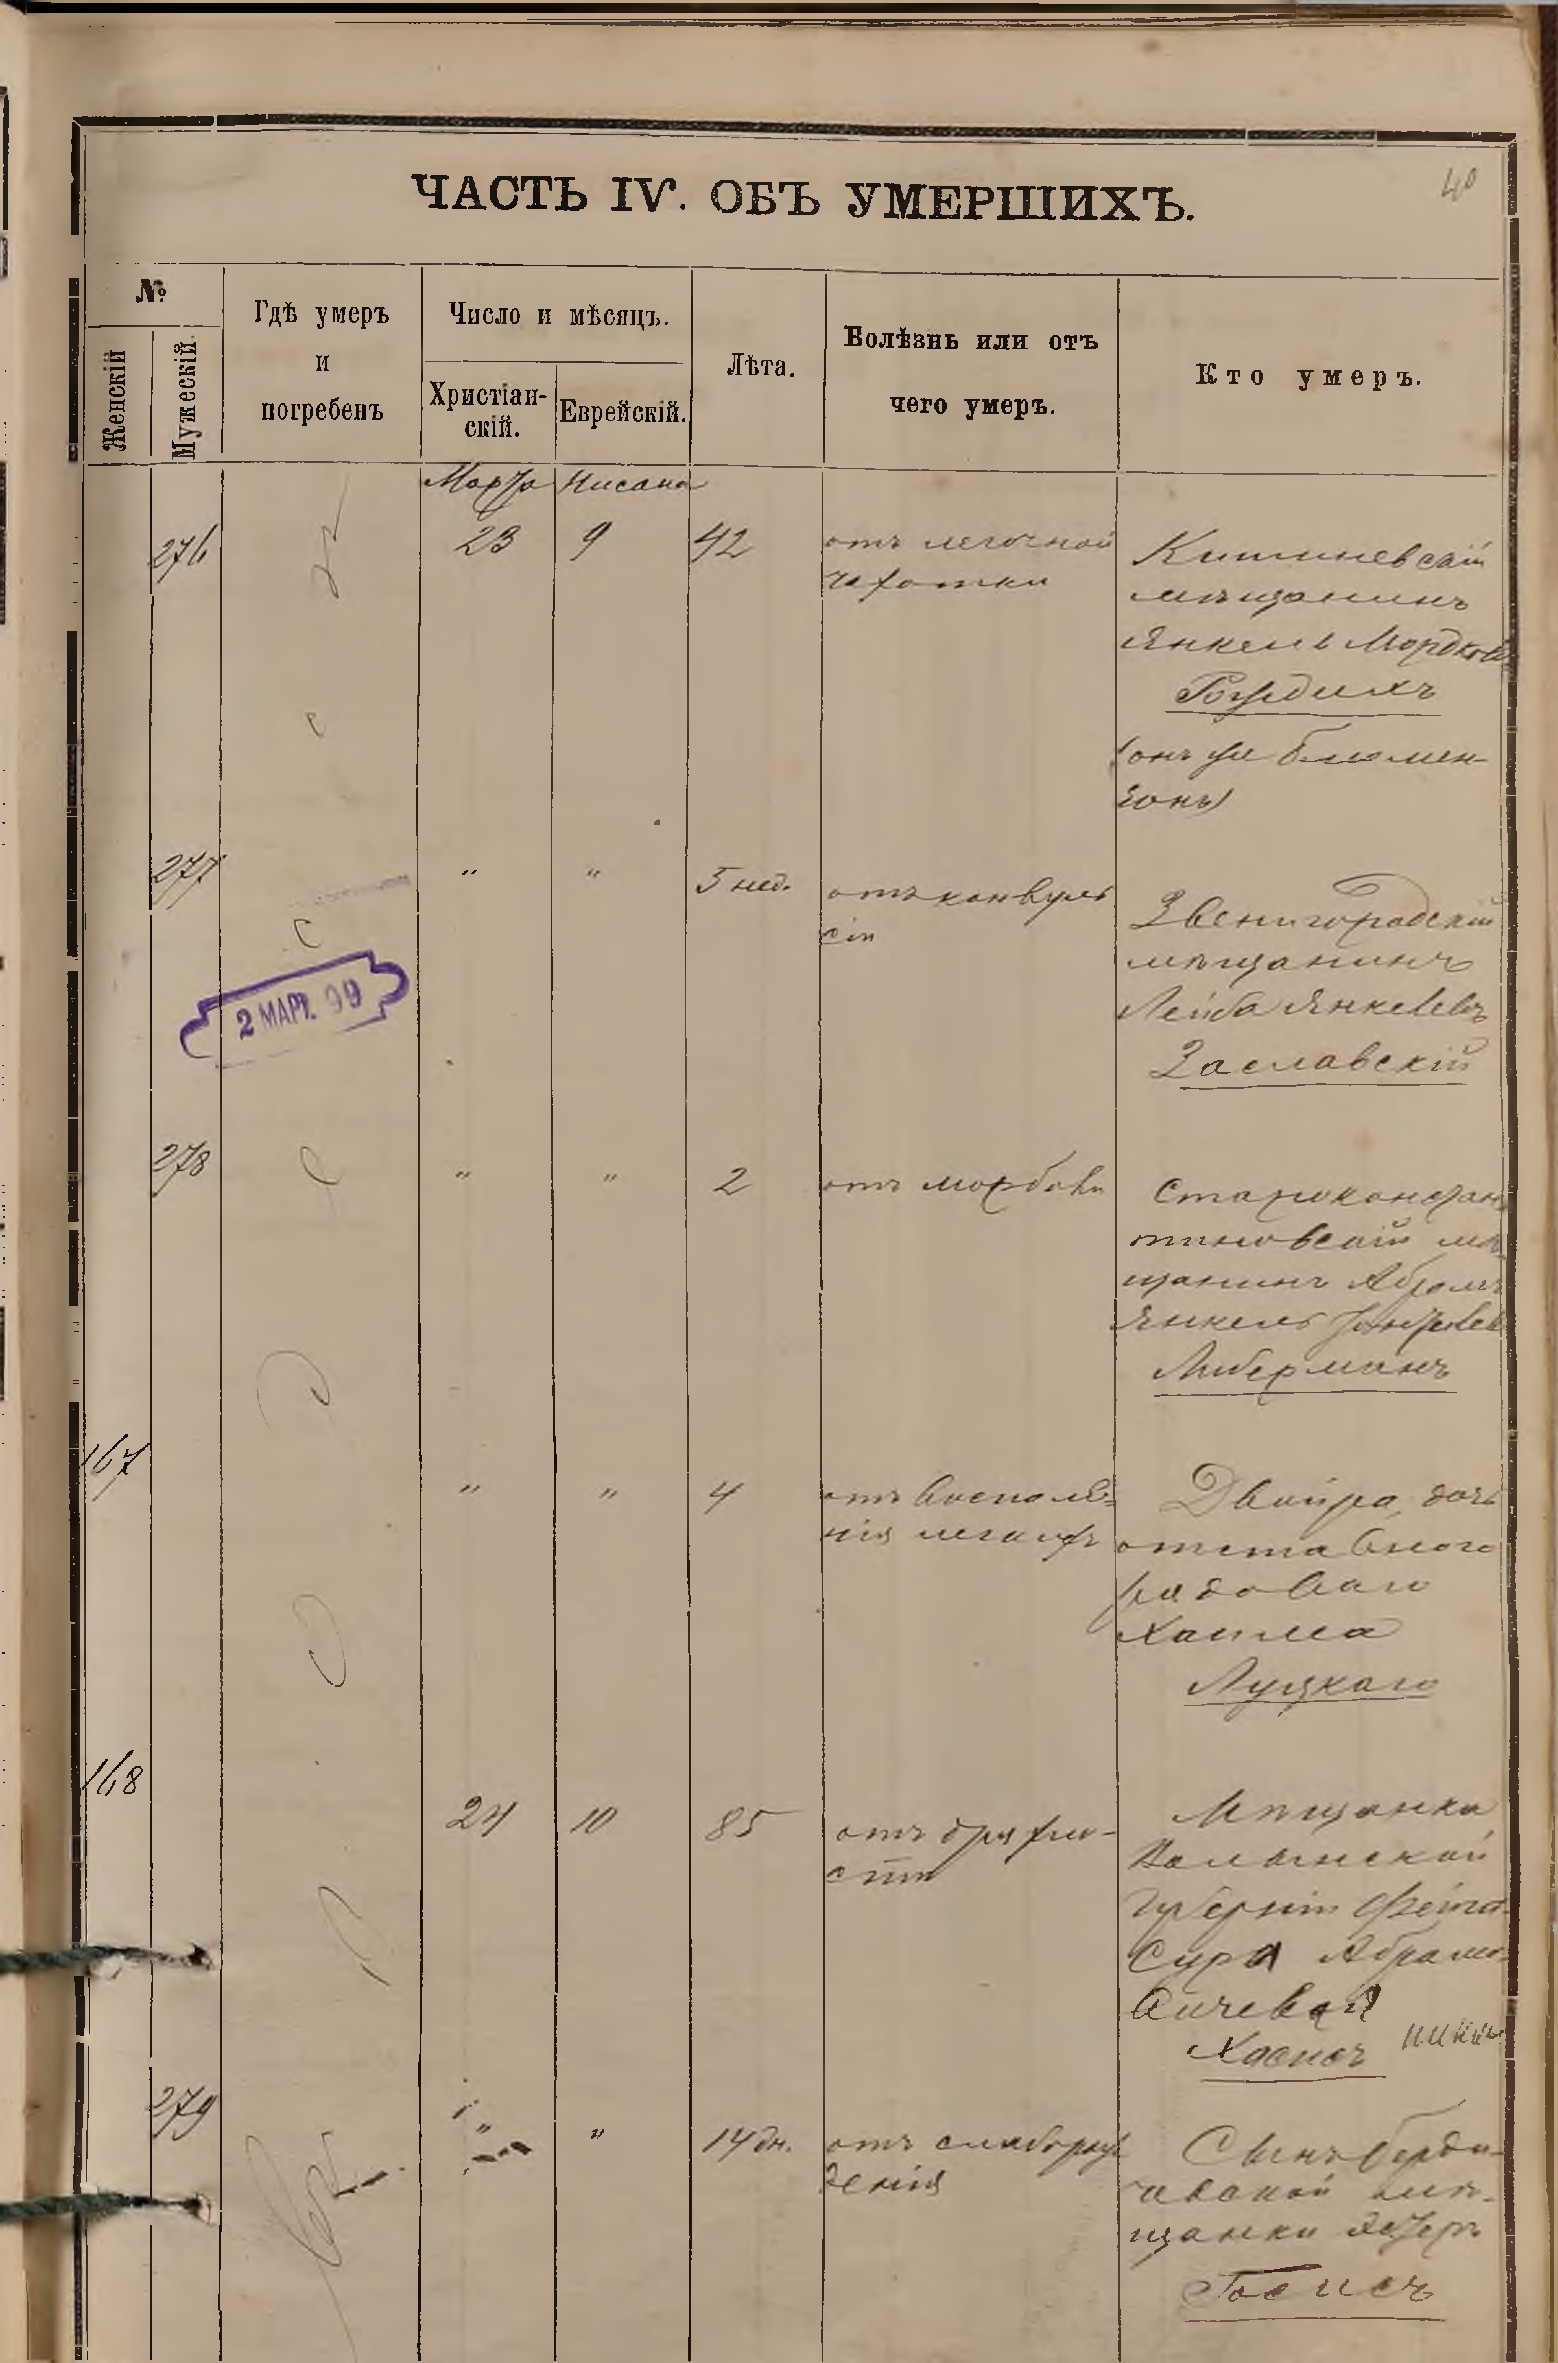 40
ЧАСТЬ IV. ОБЪ УМЕРШИХЪ.
№
Женскій
Мужескій.
Гдѣ умеръ
и
погребенъ
Число и мѣсяцъ.
Христіан-
скій.
Еврейскій.
Лѣта.
Болѣзнь или отъ
чего умеръ.
Кто умеръ.
Марта Нисана
276 23 9 42
отъ легочной
чахотки
Кишиневскій
мѣщанинъ
Янкель Мордков
(онъ же Блюмен-
зонъ)
277 " " 5 нед.
отъ конвуль
сіи
Звенигородскій
мѣщанинъ
Лейба Янкелевъ
Заславскій
2 МАРТ. 99
278 " " 2
отъ
Староконстан
тиновскій мѣ
щанинъ Абрамъ
Янкель
Либерманъ
167 " " 4
отъ воспале-
нія легкихъ
Двойра, дочь
отставного
рядоваго
Хаима
Луцкаго
168 24 10 85
отъ дряхло-
сти
Мѣщанка
Волынской
Губерніи Фейга
Сура Абрамо-
вичевая
Хасисъ
279 " " 14 дн.
отъ слаборож
денія
Сынъ Берди-
чевской мѣ-
щанки Эстеръ